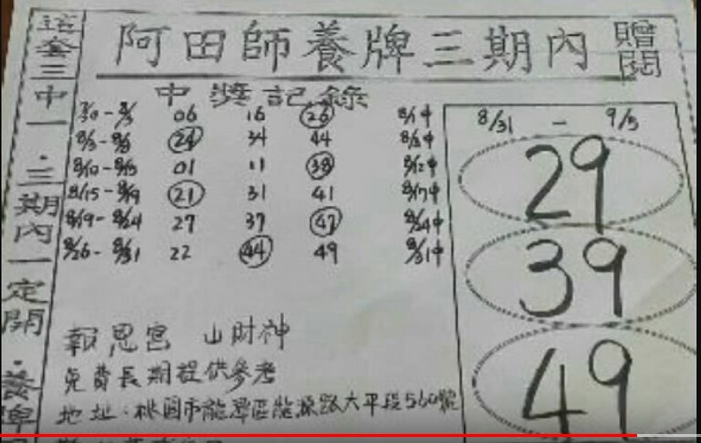 阿田師養牌三期內
贈閱
這套三中一．三期內一定開．養牌
中獎記錄
7/30-8/3 06 16 26 8/1中
8/5-8/8 24 34 44 8/8中
8/10-8/13 01 11 38 8/12中
8/15-8/19 21 31 41 8/17中
8/19-8/24 27 37 47 8/24中
8/26-8/31 22 44 49 8/31中
8/31 - 9/5
29
39
49
報恩宮 山財神
免費長期提供參考
地址：桃園市龍潭區龍源路大平段560號